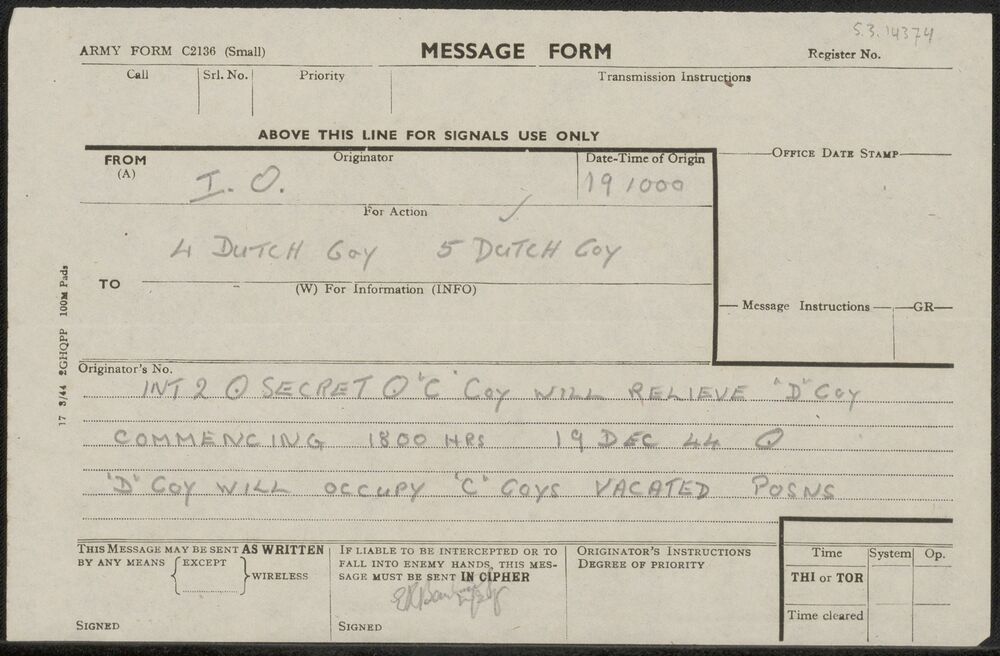 S.3.14374
ARMY FORM C2136 (Small) MESSAGE FORM Register No.
Call Srl. No. Priority Transmission Instructions
ABOVE THIS LINE FOR SIGNALS USE ONLY
FROM (A) Originator Date-Time of Origin OFFICE DATE STAMP
I. O. 191000
For Action
4 DUTCH Coy 5 DUTCH Coy
TO (W) For Information (INFO)
Message Instructions GR
17 3/44 2GHQPP 100M Pads
Originator's No.
INT 2 O SECRET O "C" Coy WILL RELIEVE "D" Coy
COMMENCING 1800 HRS 19 DEC 44 O
"D" Coy WILL OCCUPY "C" Coys VACATED POSNS
THIS MESSAGE MAY BE SENT AS WRITTEN
BY ANY MEANS EXCEPT WIRELESS
SIGNED
IF LIABLE TO BE INTERCEPTED OR TO
FALL INTO ENEMY HANDS, THIS MES-
SAGE MUST BE SENT IN CIPHER
SIGNED
ORIGINATOR'S INSTRUCTIONS
DEGREE OF PRIORITY
Time System Op.
THI or TOR
Time cleared